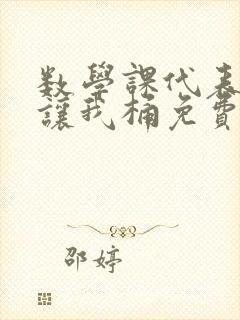 数学課代表
讓我桶免費
邵婷